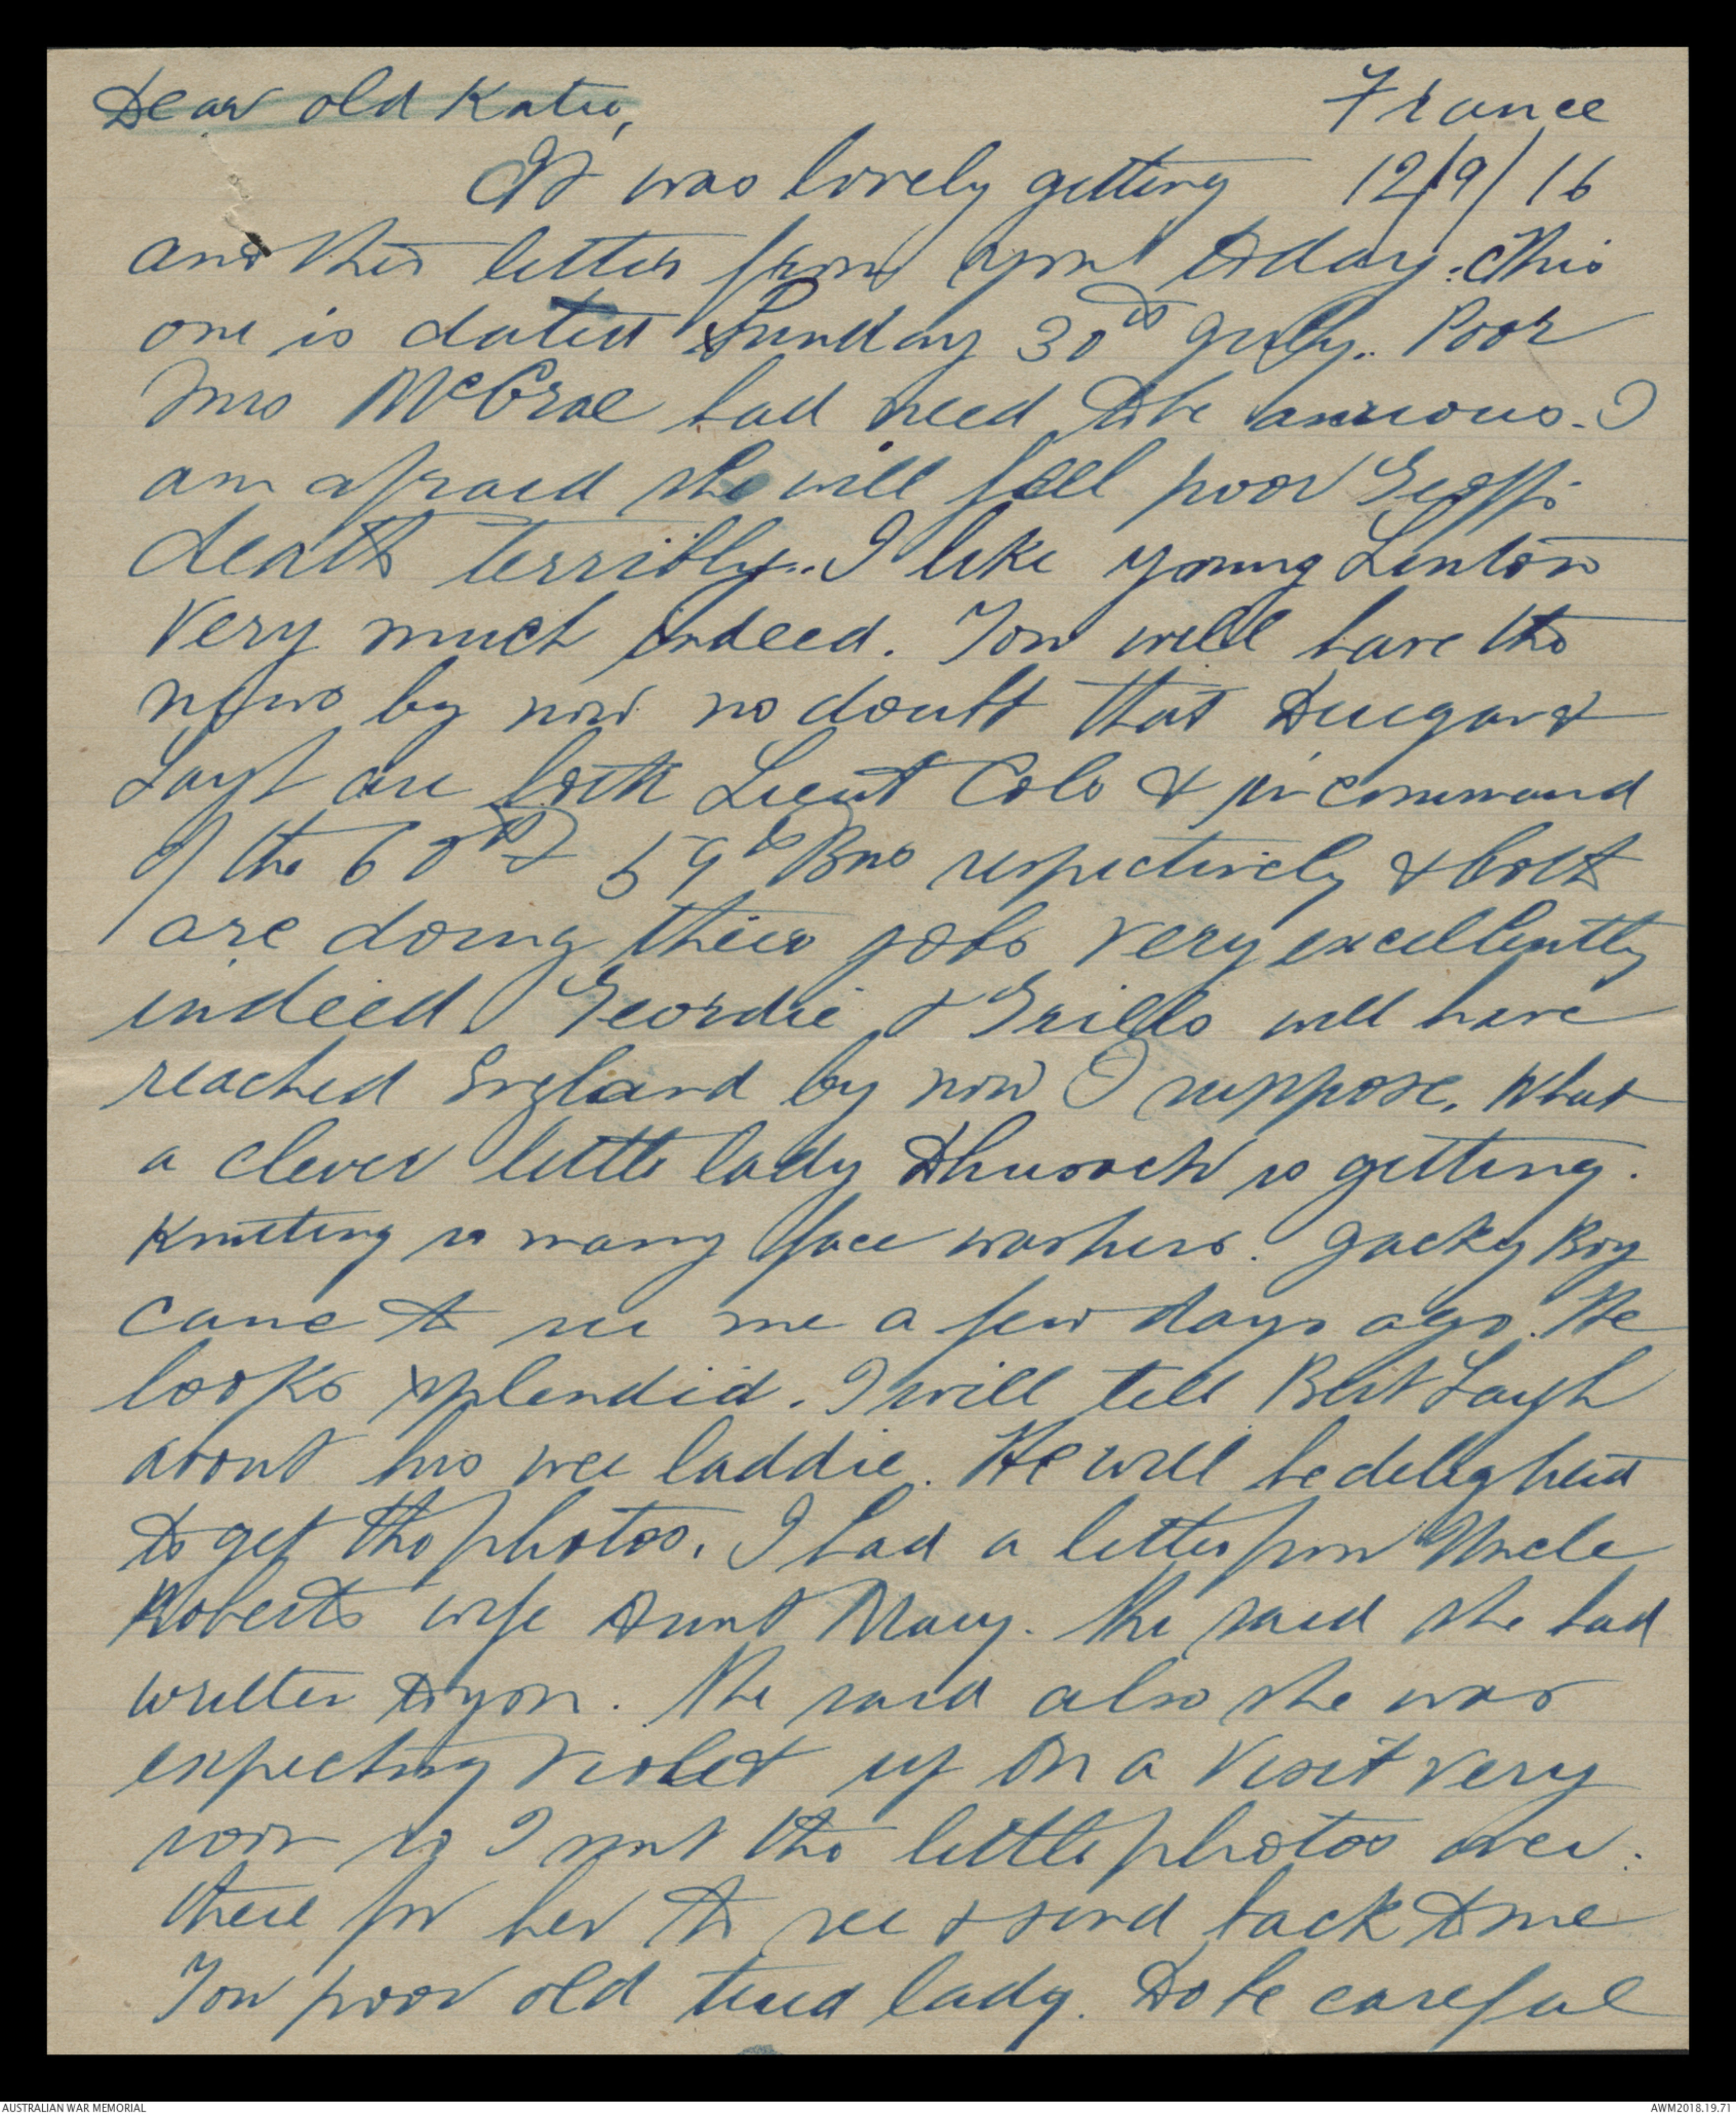 Dear old Katie, France
It was lovely getting 12/9/16
another letter from you today. This
one is dated Sunday 30th July. Poor
Mrs McCrae had need to be anxious. I
am afraid she will feel poor Geoff's
death terribly. I like young Linton
very much indeed. You will have the
news by now no doubt that Duigan &
Layh are both Lieut Cols & in command
of the 60th & 59th Bns respectively & both
are doing their jobs very excellently
indeed. Geordie & Grills will have
reached England by now I suppose. What
a clever little lady is getting.
Knitting so many face washers. Jacky Boy
came to see me a few days ago. He
looks splendid. I will tell Bert Layh
about his wee laddie. He will be delighted
to get the photos. I had a letter from Uncle
Roberts wife Aunt Mary. She said she had
written to you. She said also she was
expecting Violet up on a visit very
soon so I sent the little photos over
there for her to see & send back to me
You poor old tired lady. Do be careful
AUSTRALIAN WAR MEMORIAL AWM2018.19.71